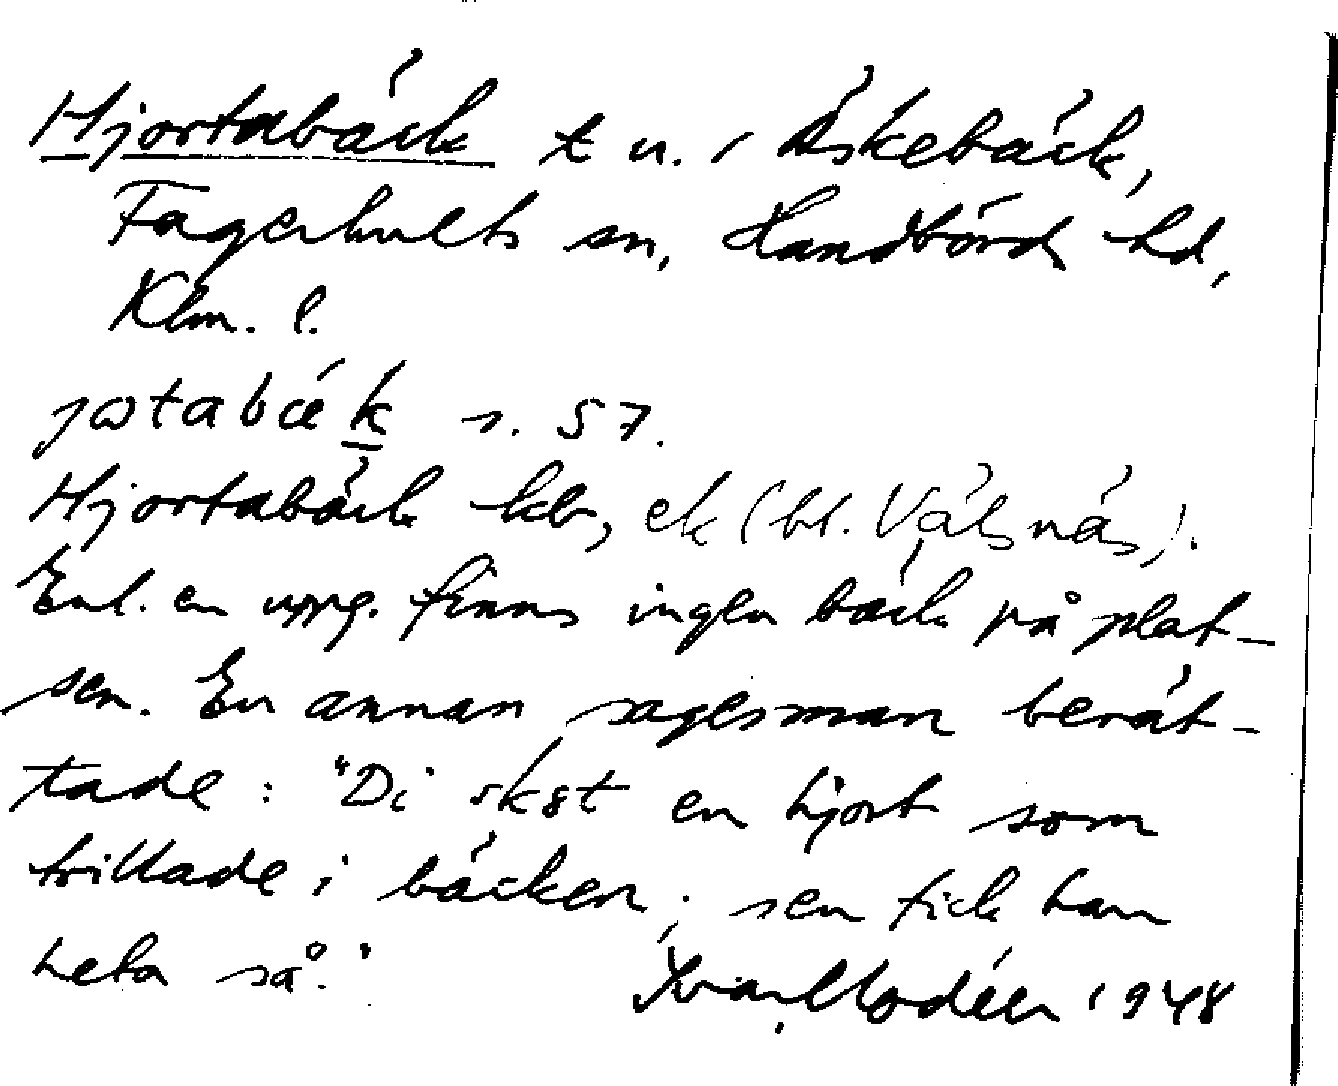 Hjortabäck t u. i Äskebäck,
Fagerhults sn, Handbörds hd,
Klm. l.
jɷtabǽk s. 57.
Hjortabäck kb, ek (bl. Välsnäs).
Enl. en uppg. finns ingen bäck på plat-
sen. En annan sagesman berät-
tade: "Di sköt en hjort som
trillade i bäcken; sen fick han
heta så."
Ivar Modéer 1948